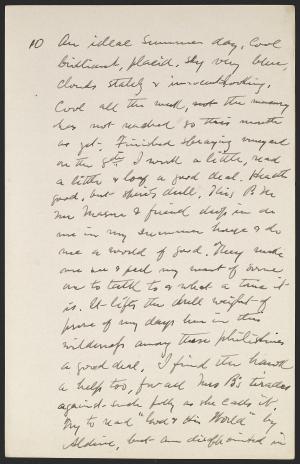 10 An ideal summer day, cool
brilliant, placid, sky very blue,
clouds stately & innocent looking.
Cool all the week, not the mercury
has not reached 80 this month
as yet. Finished spraying vineyard
on the 8th. I work a little, read
a little & loaf a good deal. Health
good, but spirits dull. This P.M.
Mr Mason & friend drop in on
me in my summer house & do
me a world of good. They make
me see & feel my want of some
one to talk to & what a tonic it
is. It lifts the dull weight of
some of my days here in this
wilderness among these philistines
a good deal. I find the hawk
a help too, for all Mrs B's tirades
against such folly as she calls it.
Try to read "God & His World" by
Aldine, but am disappointed in